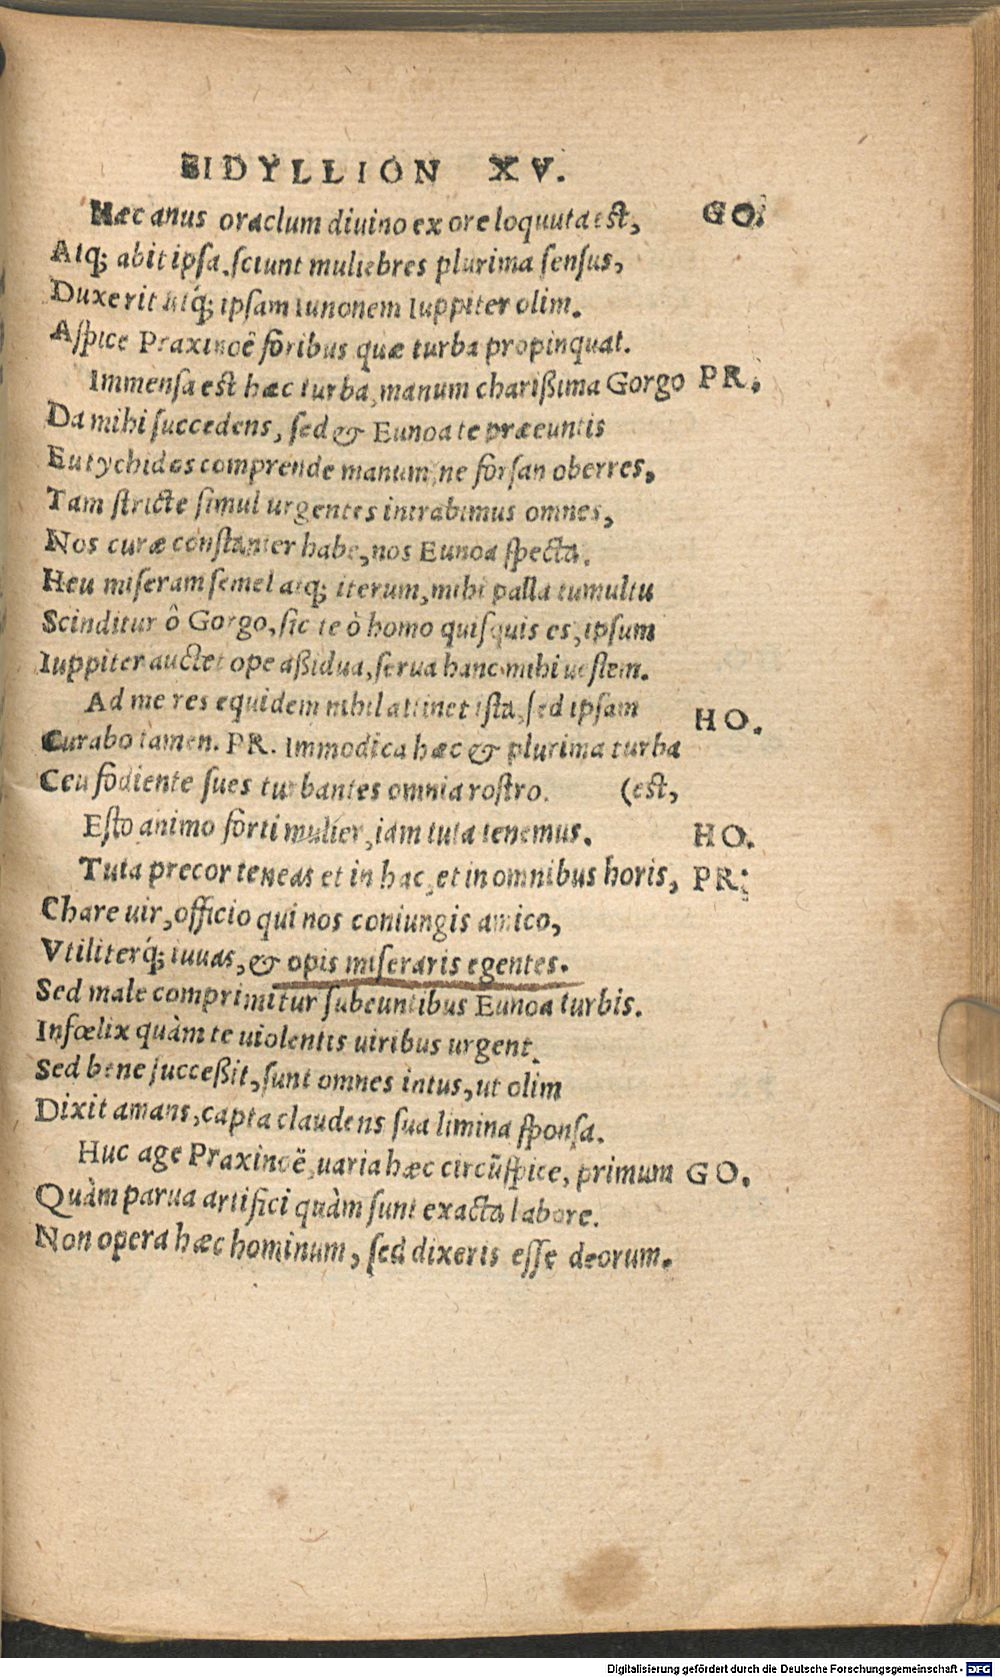 EIDYLLION XV.
Hæc anus oraclum diuino ex ore loquuta est, GO.
Atq; abit ipsa. sciunt muliebres plurima sensus,
Duxerit utq́; ipsam Iunonem Iuppiter olim.
Aspice Praxinoë foribus quæ turba propinquat.
Immensa est hæc turba, manum charißima Gorgo PR.
Da mihi succedens, sed & Eunoa te præeuntis
Eutychidos comprende manum, ne forsan oberres,
Tam stricte simul urgentes intrabimus omnes,
Nos curæ constanter habe, nos Eunoa specta.
Heu miseram semel atq; iterum, mihi palla tumultu
Scinditur ô Gorgo, sic te ò homo quisquis es, ipsum
Iuppiter auctet ope aßidua, serua hanc mihi uestem.
Ad me res equidem nihil attinet ista, sed ipsam HO.
Curabo tamen. PR. Immodica hæc & plurima turba
Ceu fodiente sues turbantes omnia rostro. (est,
Esto animo forti mulier, iam tuta tenemus. HO.
Tuta precor teneas et in hac, et in omnibus horis, PR:
Chare uir, officio qui nos coniungis amico,
Vtiliterq́; iuuas, & opis miseraris egentes.
Sed male comprimitur subeuntibus Eunoa turbis.
Infœlix quàm te uiolentis uiribus urgent.
Sed bene succeßit, sunt omnes intus, ut olim
Dixit amans, capta claudens sua limina sponsa.
Huc age Praxinoë, uaria hæc circũspice, primum GO.
Quàm parua artifici quàm sunt exacta labore.
Non opera hæc hominum, sed dixeris esse deorum.
Digitalisierung gefördert durch die Deutsche Forschungsgemeinschaft - DFG